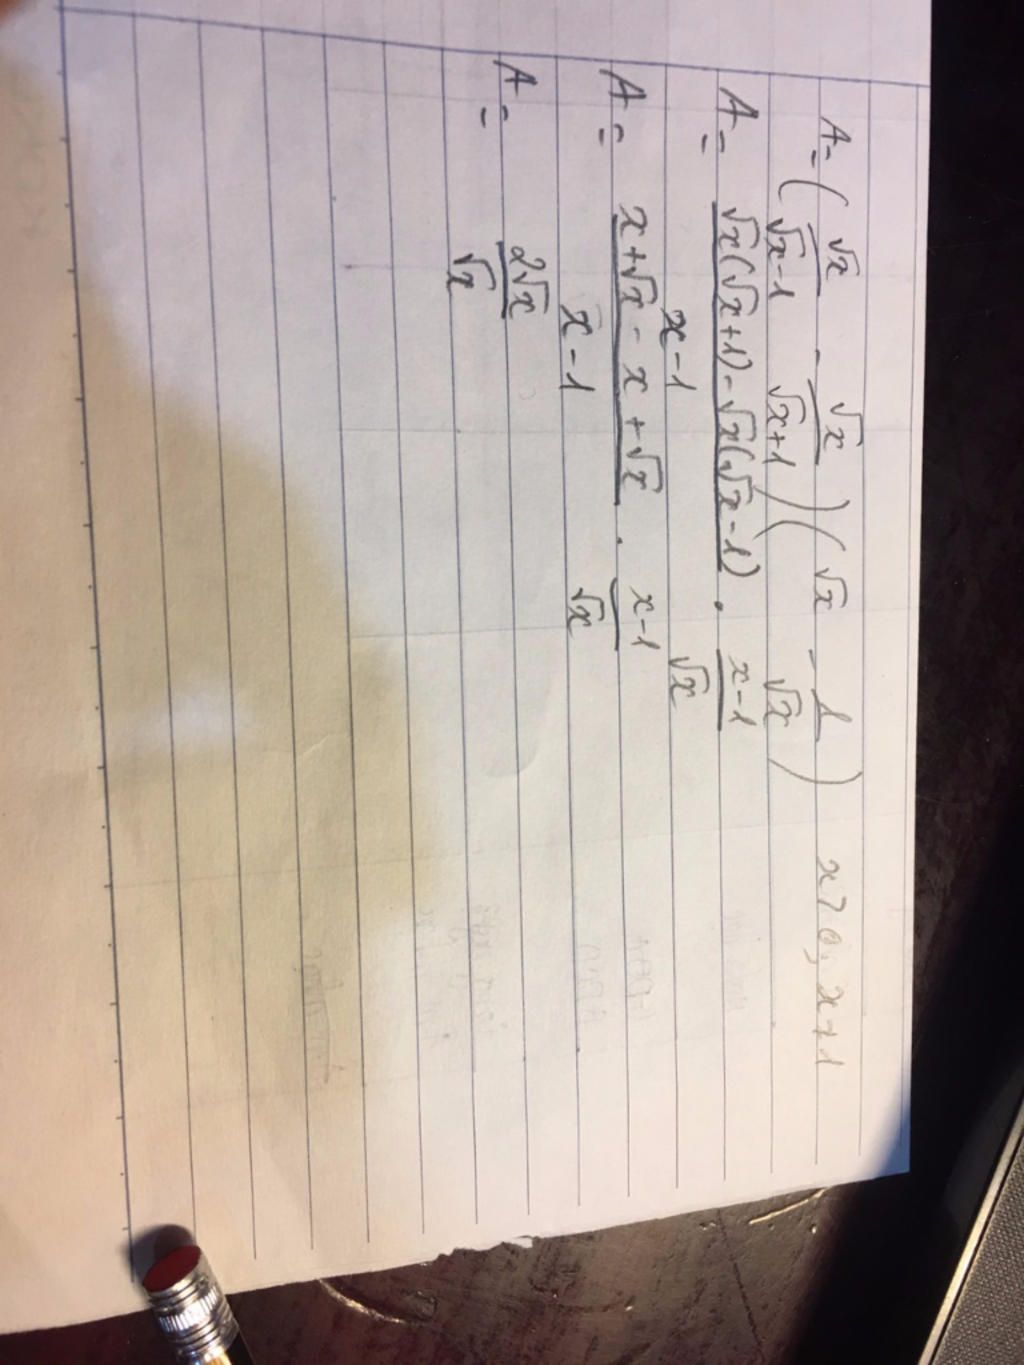 A = ( √x / √x-1 - √x / √x+1 ) ( √x - 1 / √x ) x > 0, x ≠ 1
A = √x(√x+1) - √x(√x-1) / x-1 . x-1 / √x
A = x+√x - x+√x / x-1 . x-1 / √x
A = 2√x / √x